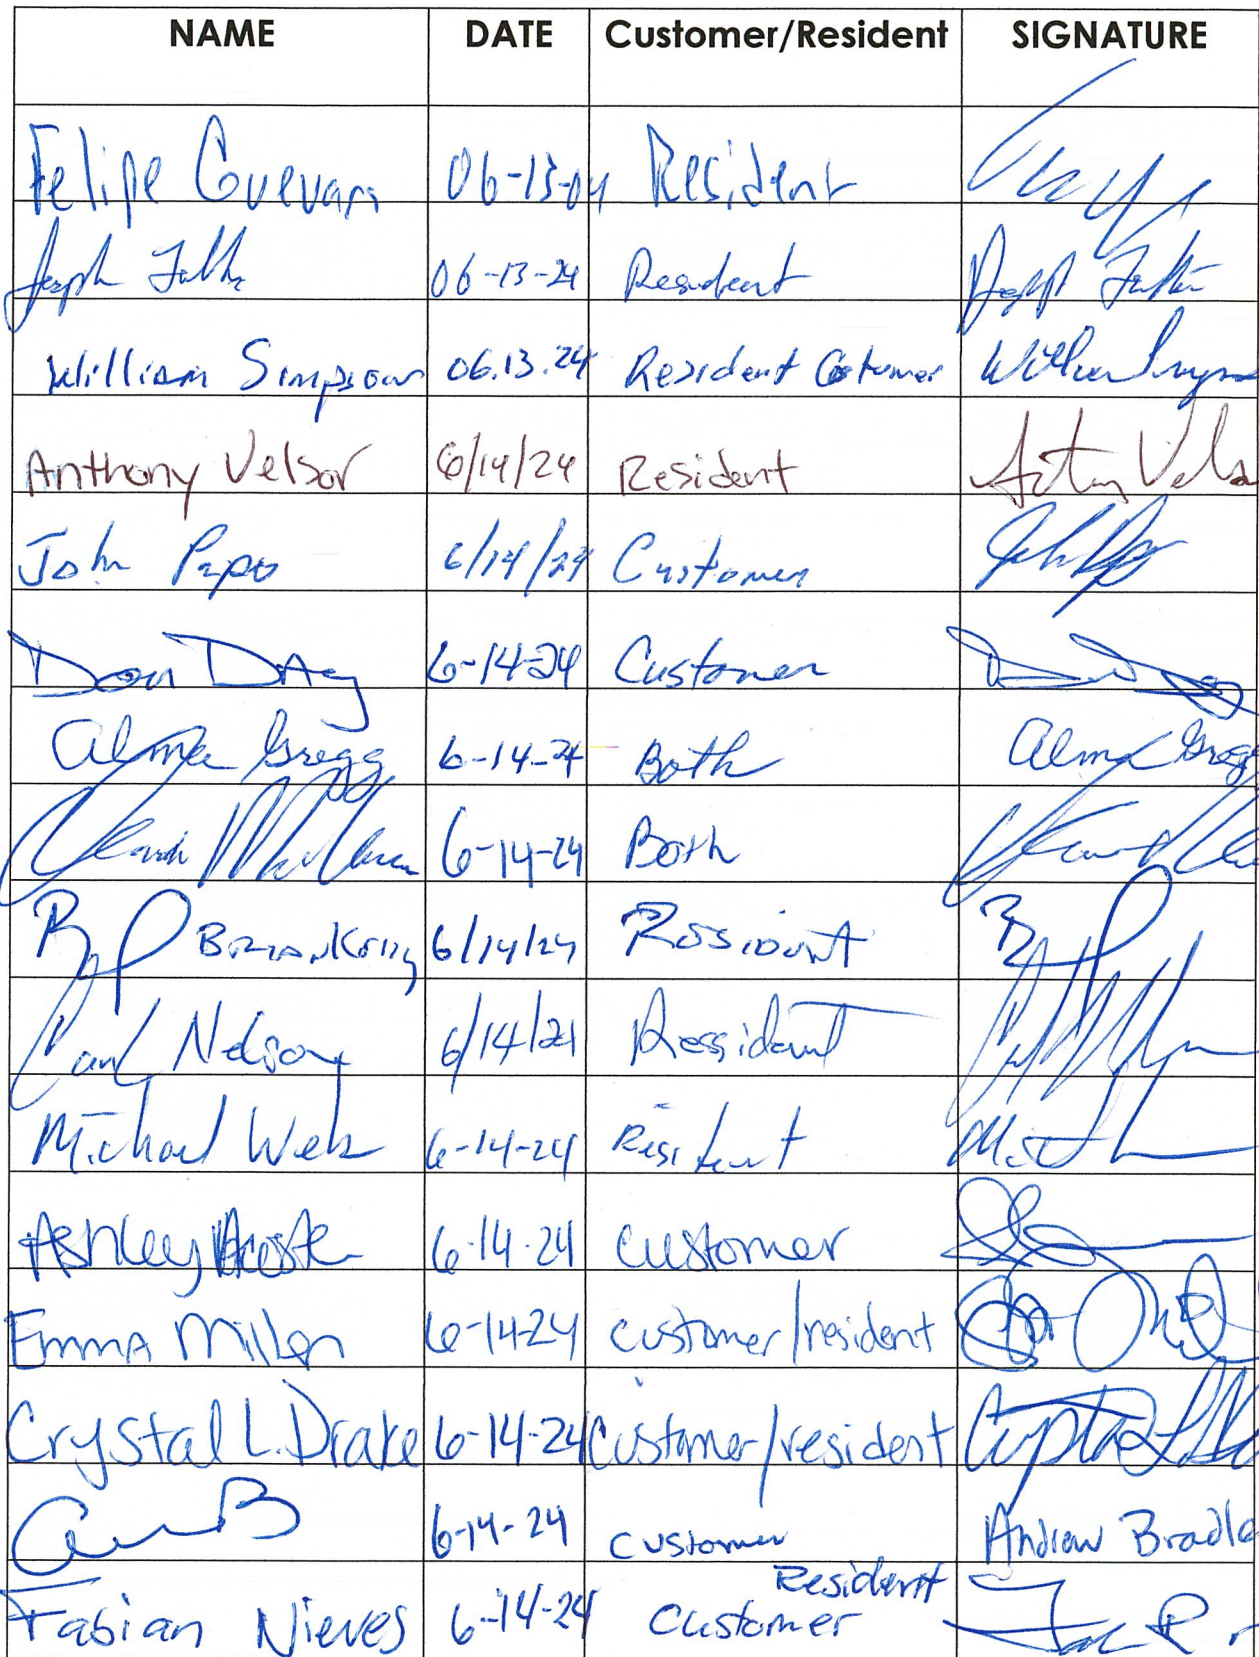 NAME DATE Customer/Resident SIGNATURE
Felipe Guevara 06-13-04 Resident
Joseph 06-13-24 Resident Joseph
William Simpson 06.13.24 Resident Costumer William Simpson
Anthony Velsor 6/14/24 Resident
John Papo 6/14/24 Customer
Don 6-14-24 Customer
Alma Gregg 6-14-24 Both Alma Gregg
6-14-24 Both
Brian Kelly 6/14/24 Resident
Carl Nelson 6/14/24 Ressident
Michael 6-14-24 Resident
Ashley 6-14-24 customer
Emma Miller 6-14-24 customer/resident
Crystal L. Drake 6-14-24 Customer/resident
6-14-24 customer Andrew Bradle
Resident
Fabian Nieves 6-14-24 Customer